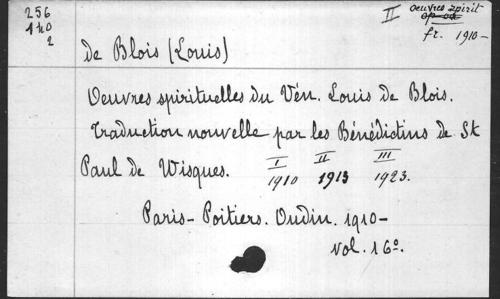 256
A40
2
II Oeuvres spirit
fr. 1910-
de Blois (Louis)
Oeuvres spirituelles du Vén. Louis de Blois.
Traduction nouvelle par les Bénédictins de St
Paul de Wisques. I II III
1910 1913 1923.
Paris-Poitiers. Oudin. 1910-
vol. 16º.